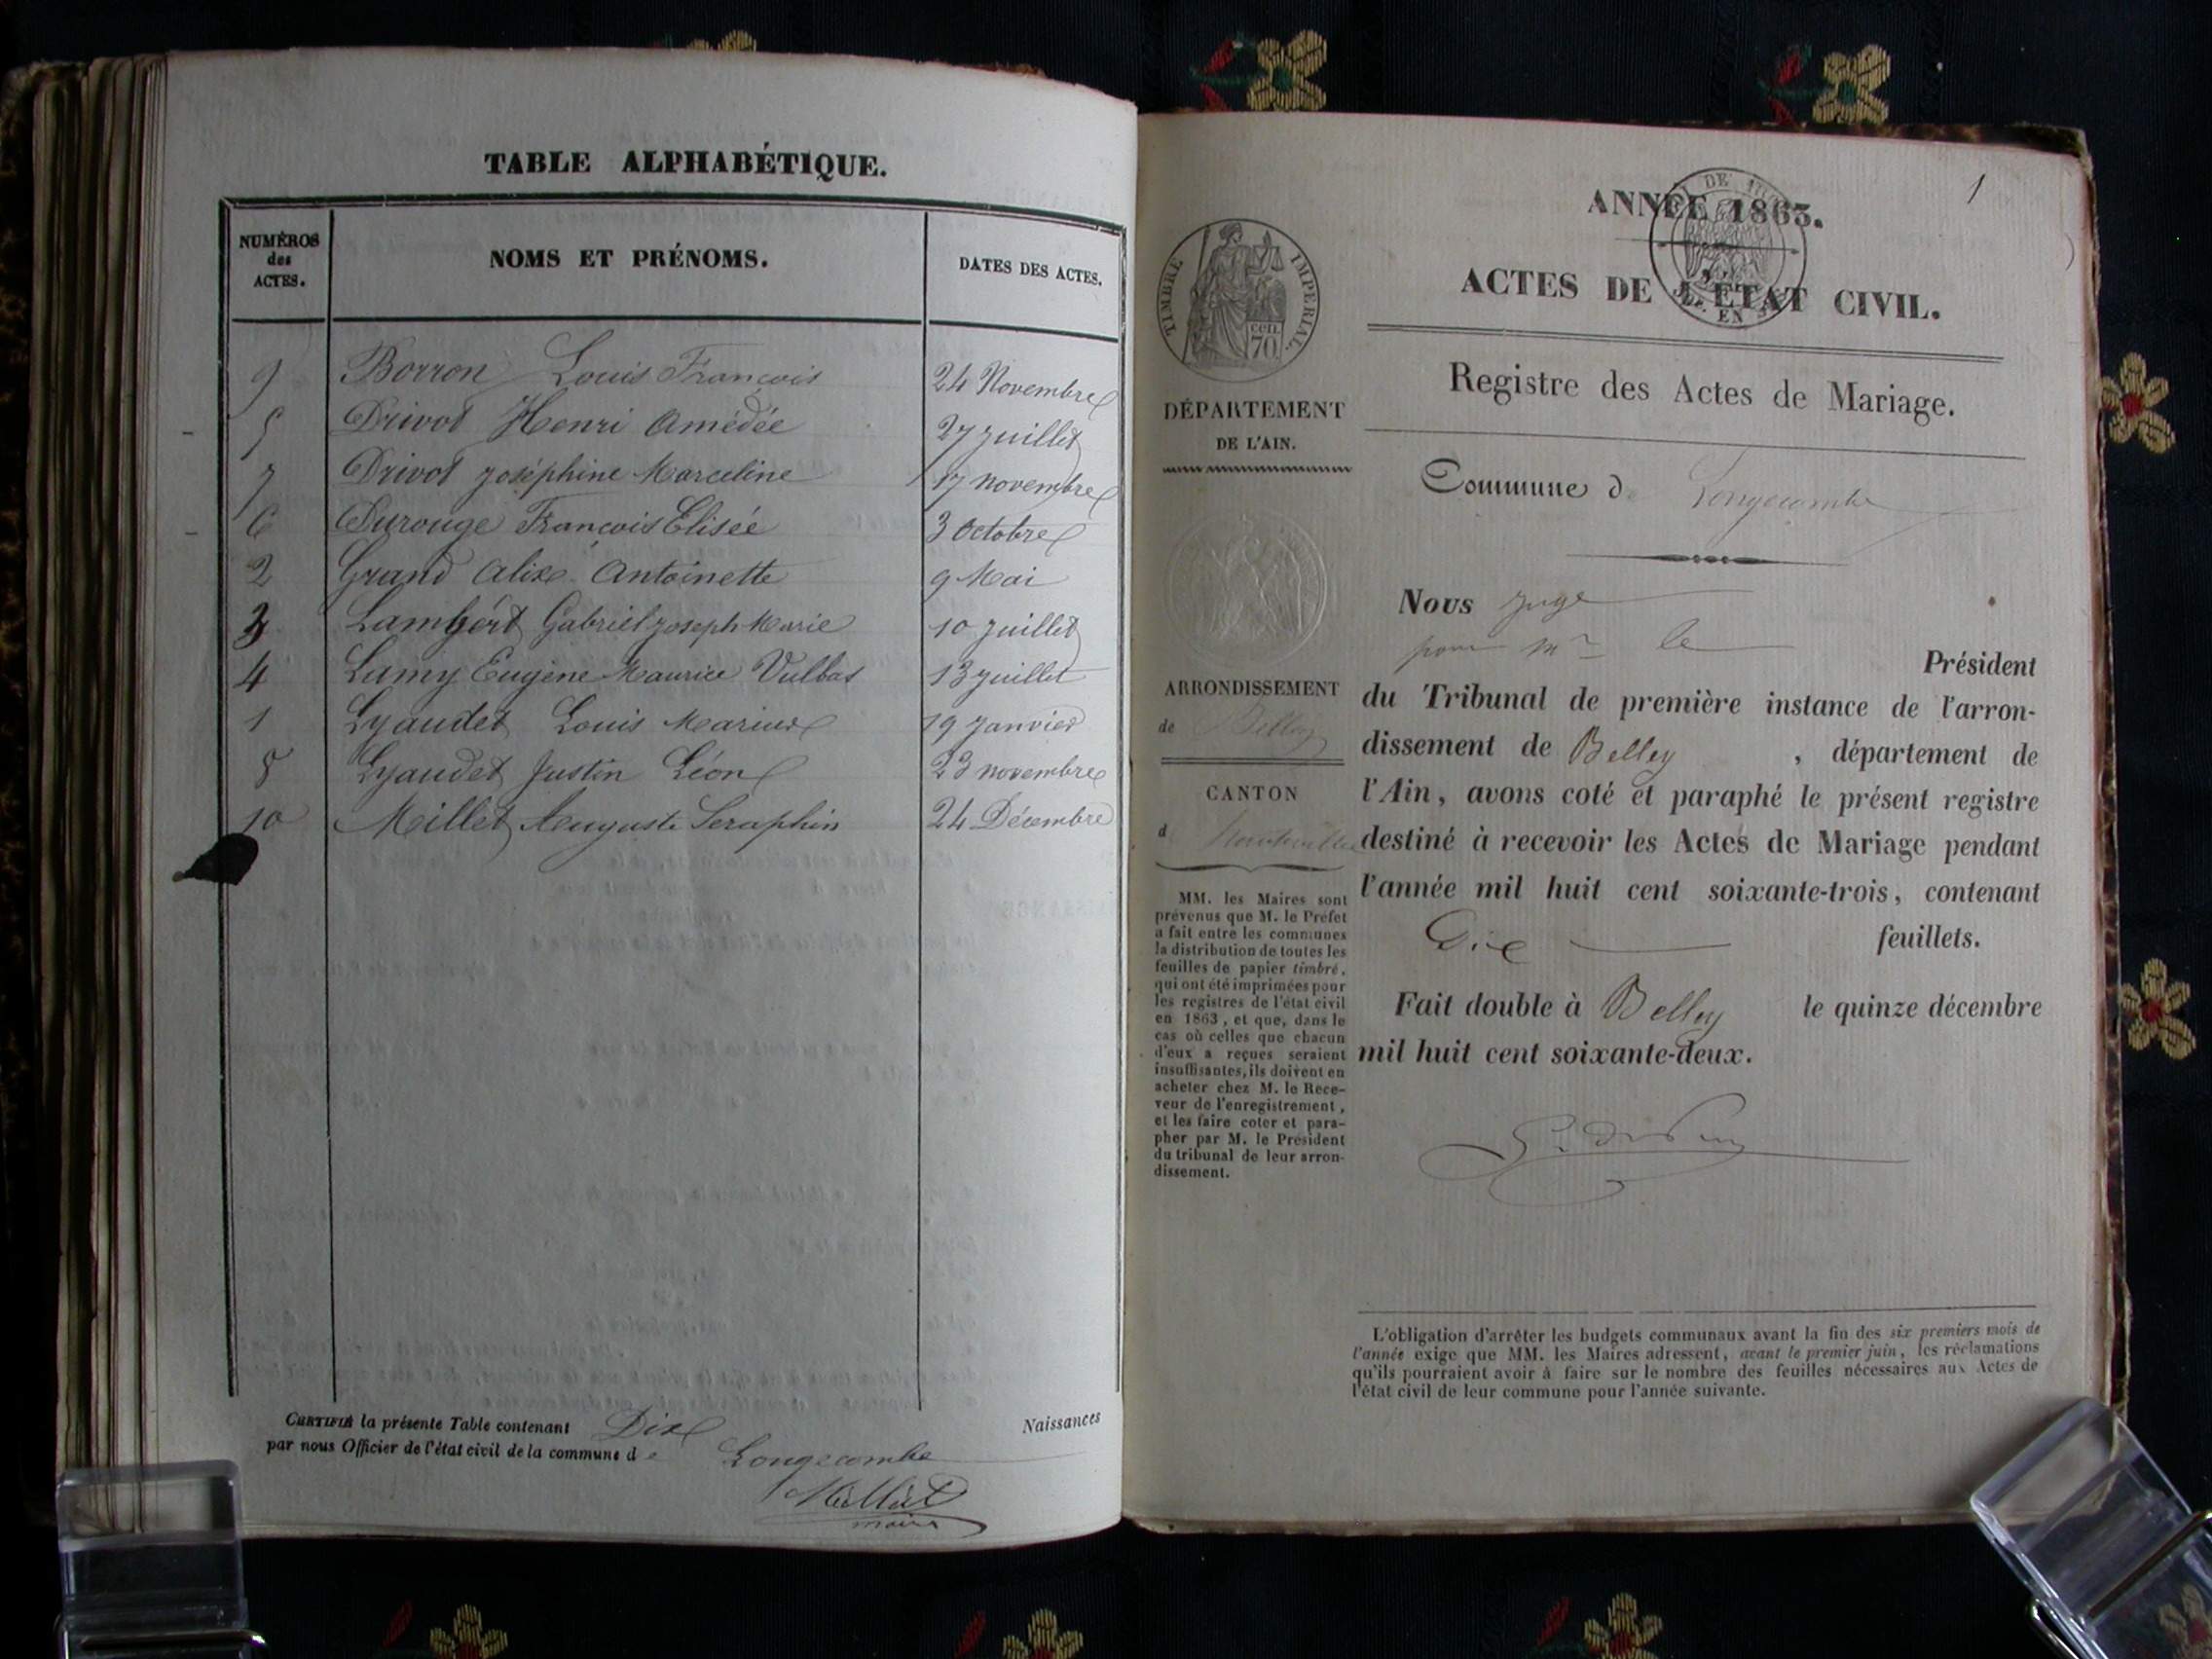 TABLE ALPHABÉTIQUE.
NUMÉROS des ACTES.
NOMS ET PRÉNOMS.
DATES DES ACTES.
9 Borron Louis François 24 Novembre
5 Drivot Henri Amédée 27 juillet
7 Drivot joséphine Marceline 17 novembre
6 Durouge François Elisée 3 octobre
2 Grand Alix Antoinette 9 Mai
3 Lambért Gabriel joseph Marie 10 juillet
4 Lamy Eugène Maurice Vulbas 13 juillet
1 Lyaudet Louis Marius 19 janvier
8 Lyaudet Justin Léon 23 novembre
10 Millet Auguste Seraphin 24 Décembre
CERTIFIÉ la présente Table contenant Dix Naissances
par nous Officier de l'état civil de la commune de Longecombe
Millet
maire
1
ANNÉE 1863.
ACTES DE L'ÉTAT CIVIL.
TIMBRE IMPERIAL
cen.
70
Registre des Actes de Mariage.
DÉPARTEMENT
DE L'AIN.
Commune de Longecombe
Nous juge
pour Mr le
Président
du Tribunal de première instance de l'arron-
dissement de Belley , département de
l'Ain, avons coté et paraphé le présent registre
destiné à recevoir les Actes de Mariage pendant
l'année mil huit cent soixante-trois, contenant
Dix feuillets.
Fait double à Belley le quinze décembre
mil huit cent soixante-deux.
ARRONDISSEMENT
de Belley
CANTON
d Hauteville
MM. les Maires sont
prévenus que M. le Préfet
a fait entre les communes
la distribution de toutes les
feuilles de papier timbré,
qui ont été imprimées pour
les registres de l'état civil
en 1863, et que, dans le
cas où celles que chacun
d'eux a reçues seraient
insuffisantes, ils doivent en
acheter chez M. le Rece-
veur de l'enregistrement,
et les faire coter et para-
pher par M. le Président
du tribunal de leur arron-
dissement.
L'obligation d'arrêter les budgets communaux avant la fin des six premiers mois de
l'année exige que MM. les Maires adressent, avant le premier juin, les réclamations
qu'ils pourraient avoir à faire sur le nombre des feuilles nécessaires aux Actes de
l'état civil de leur commune pour l'année suivante.